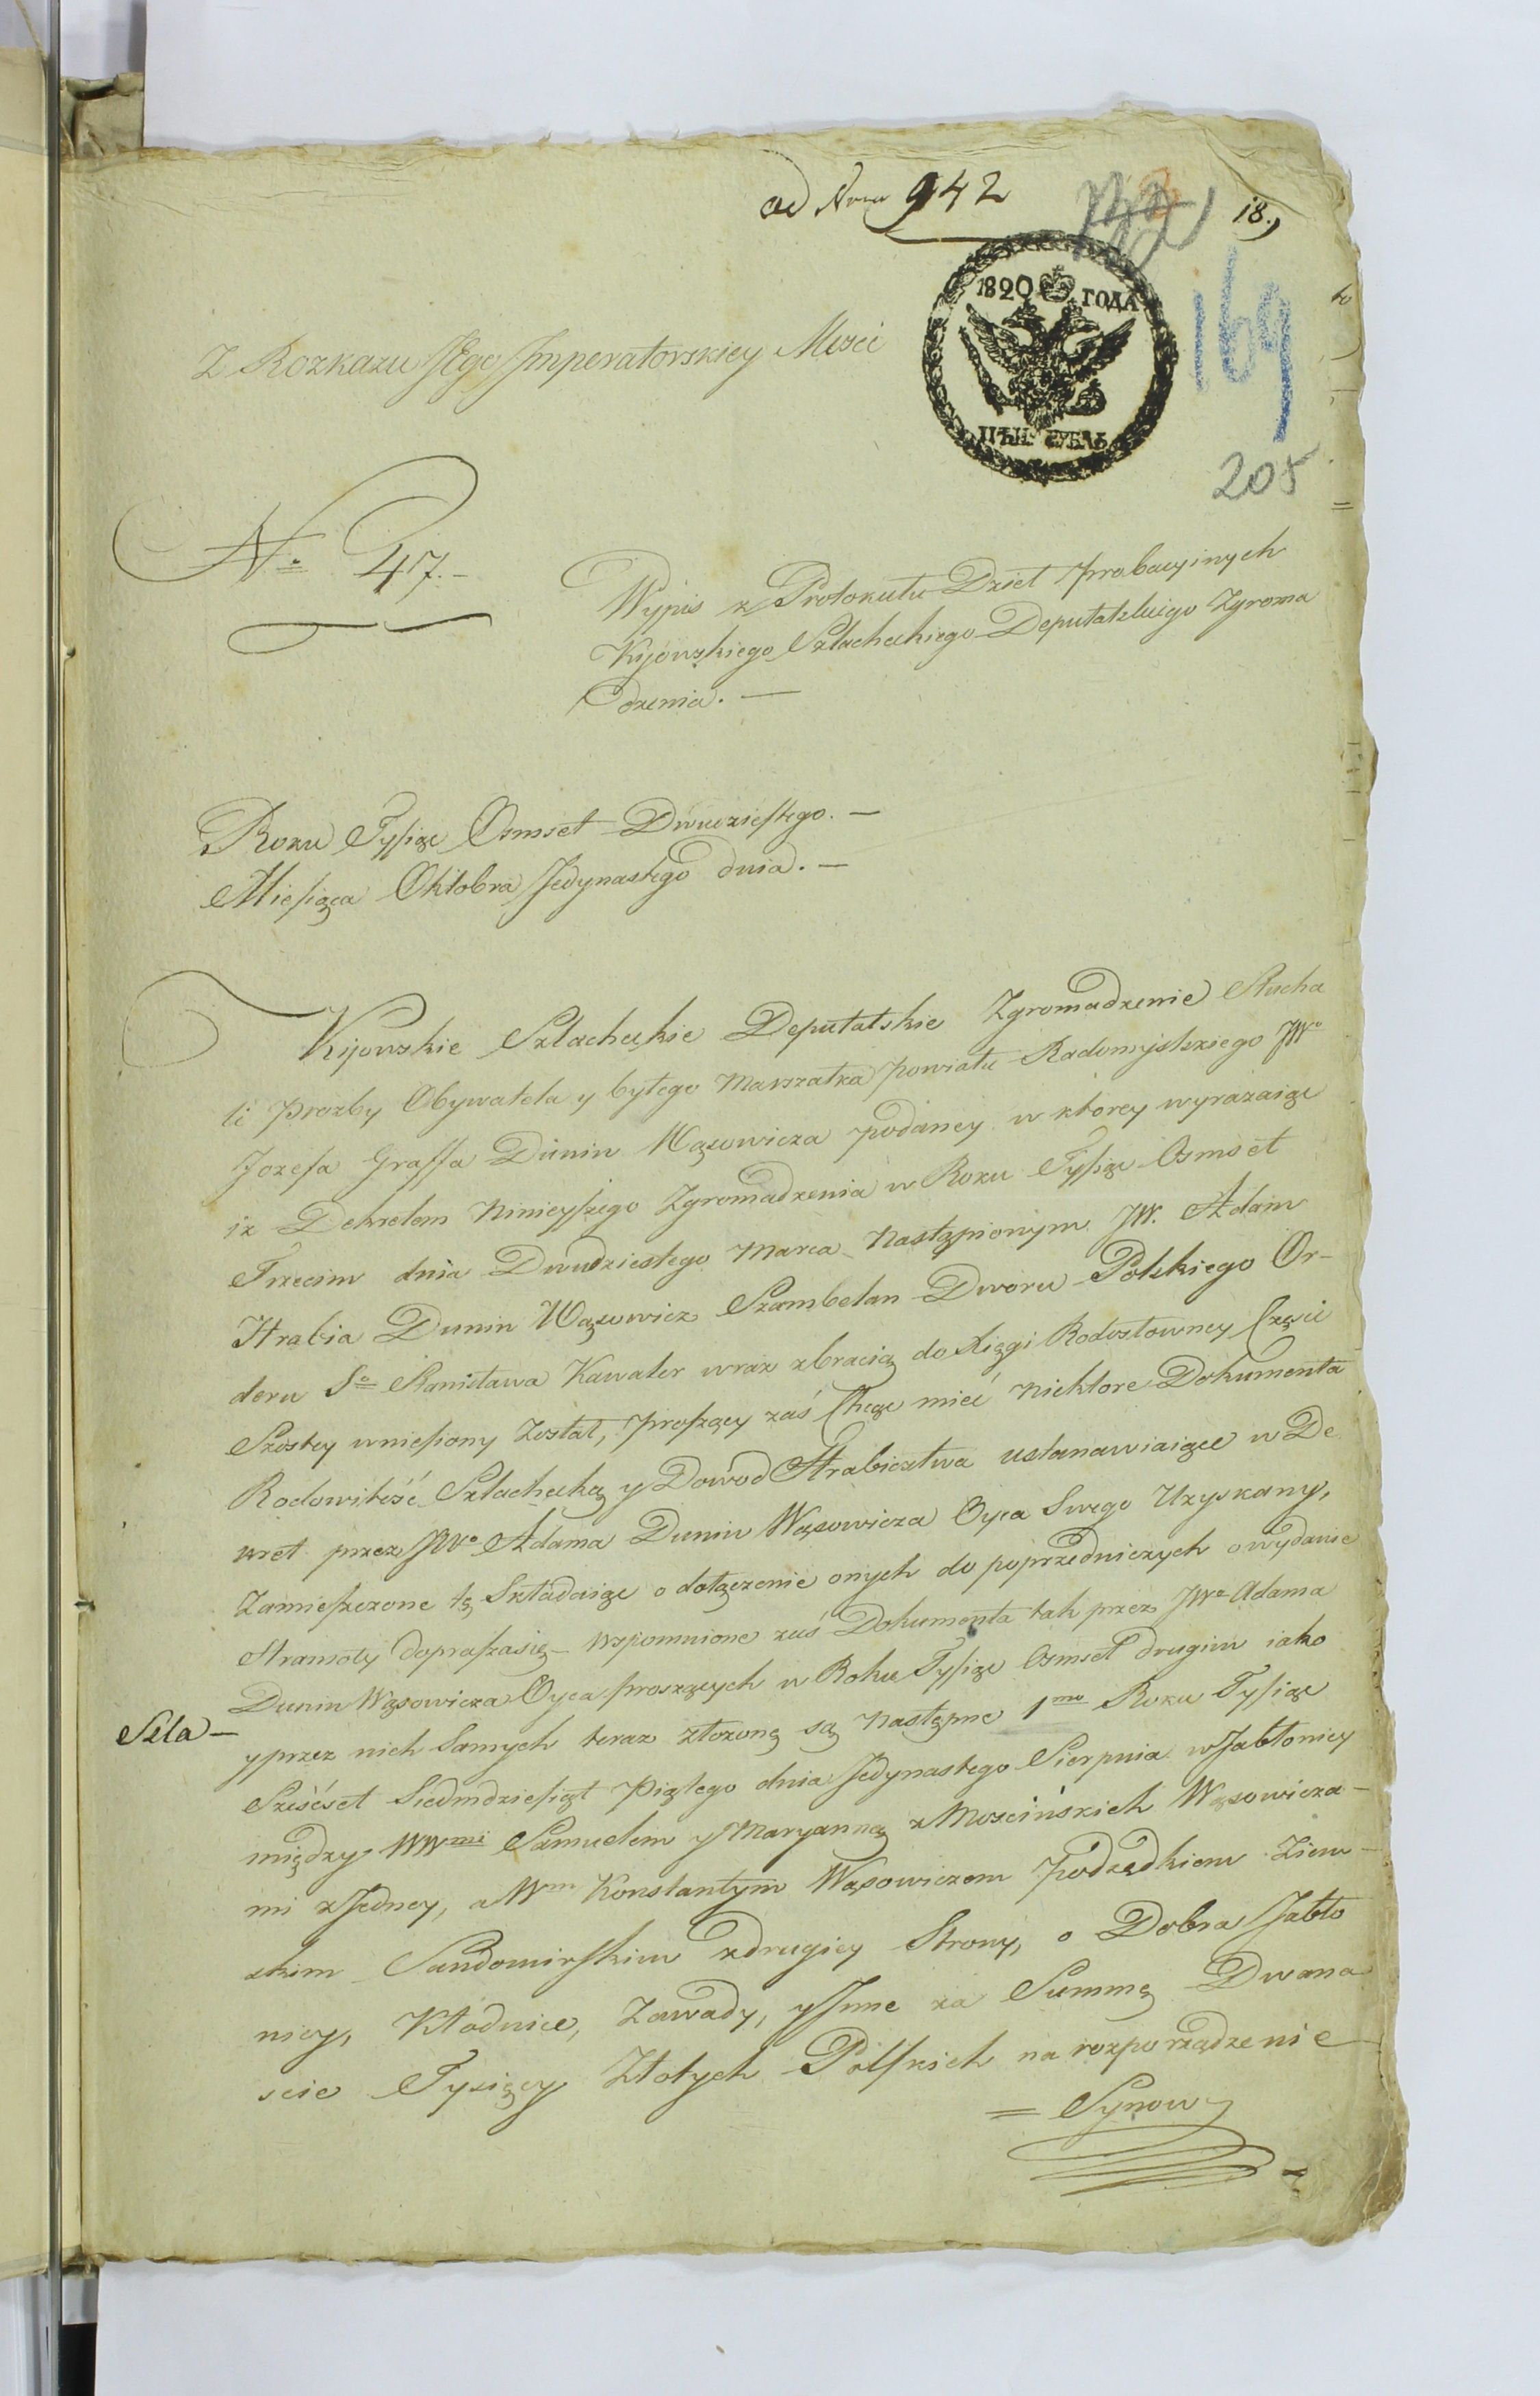 ad Nrum 942
18.
1820 ГОДА
ЦѢНА РУБЛЬ
169
205
Z Rozkazu JEgo Imperatorskiey Mości
No 47.-
Wypis z Protokułu Dzieł probacyinych
Kijowskiego Szlacheckiego Deputatskiego Zgroma
dzenia. —
Roku Tysiąc Osmset Dwudziestego. —
Miesiąca Oktobra Jedynastego dnia. —
Kijowskie Szlacheckie Deputatskie Zgromadzenie Słucha
li Prozby Obywatela y byłego Marszałka powiatu Radomyslskiego JWo
Jozefa Graffa Dunin Wąsowicza podaney w ktorey wyrażaiąc
iż Dekretem Ninieyszego Zgromadzenia w Roku Tysiąc Osmset
Trzecim dnia Dwudziestego Marca Nastąpionym JW. Adam
Hrabia Dunin Wąsowicz Szambelan Dworu Polskiego Or-
deru So Stanisława Kawaler wraz zbracią do Xięgi Rodosłowney Częsci
Szóstey wniesiony Został, Proszący zaś Chcąc mieć Niektore Dokumenta
Rodowitość Szlachecką y Dowod Hrabiostwa ustanawiaiące w De
kret przez JWo Adama Dunin Wąsowicza Oyca Swego Uzyskany,
Zamieszczone tę Składaiąc o dołączenie onych do poprzedniczych o wydanie
Hramoty doprasza się — Wspomnione zaś Dokumenta tak przez JWo Adama
Dunin Wąsowicza Oyca proszących w Roku Tysiąc Osmset drugim iako
y przez nich Samych teraz złożone są Następne 1mo Roku Tysiąc
Szla —
Sześćset Siedmdziesiąt Piątego dnia Jedynastego Sierpnia w Jabłonicy
między WWmi Samuelem y Maryanną z Moscińskich Wąsowicza-
mi z Jedney, a Wm Konstantym Wąsowiczem Podsędkiem Ziem-
skim Sandomirskim z drugiey Strony, o Dobra Jabło
nicy, Kłodnice, Zawady, y Inne za Summę Dwana
scie Tysięcy Złotych Polskich na rozporządzenie
= Synow